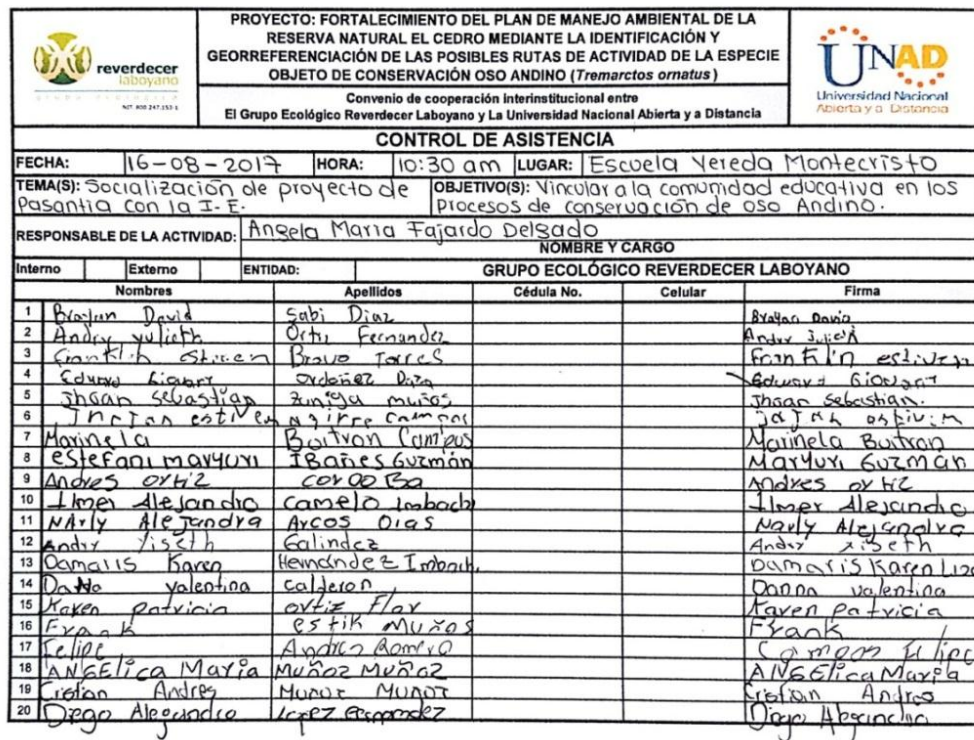 reverdecer
laboyano
grupo ecológico
NIT. 800.247.153-1
PROYECTO: FORTALECIMIENTO DEL PLAN DE MANEJO AMBIENTAL DE LA
RESERVA NATURAL EL CEDRO MEDIANTE LA IDENTIFICACIÓN Y
GEORREFERENCIACIÓN DE LAS POSIBLES RUTAS DE ACTIVIDAD DE LA ESPECIE
OBJETO DE CONSERVACIÓN OSO ANDINO (Tremarctos ornatus)
Convenio de cooperación interinstitucional entre
El Grupo Ecológico Reverdecer Laboyano y La Universidad Nacional Abierta y a Distancia
UNAD
Universidad Nacional
Abierta y a Distancia
CONTROL DE ASISTENCIA
FECHA: 16-08-2017 HORA: 10:30 am LUGAR: Escuela Vereda Montecristo
TEMA(S): Socialización de proyecto de
Pasantia con la I.E.
OBJETIVO(S): Vincular a la comunidad educativa en los
Procesos de conservación de oso Andino.
RESPONSABLE DE LA ACTIVIDAD: Angela Maria Fajardo Delgado
NOMBRE Y CARGO
Interno Externo ENTIDAD: GRUPO ECOLÓGICO REVERDECER LABOYANO
Nombres Apellidos Cédula No. Celular Firma
1 Brayan David Sabi Diaz Brayan David
2 Andry yulieth Ortiz Fernandez Andry Julieth
3 Franklin Bravo Torres Franklin
4 Eduard Ordoñez Eduard
5 Jhoan Sebastian Zuñiga muños Jhoan Sebastian.
6 estiven
7 Marinela Buitron Campos Marinela Buitron
8 Estefani maryuri IBañes Guzmán Maryuri Guzmán
9 Andres ortiz cordoBa Andres ortiz
10 Ilmer Alejandro Camelo Imbachi Ilmer Alejandro
11 NArly Alejandra Arcos Dias Narly Alejandra
12 Andry Yiseth Galindez Andry Yiseth
13 Damaris Karen Hernández Imbachi Damaris Karen
14 Danna valentina calderon Danna valentina
15 Karen patricia ortiz Flor Karen patricia
16 Frank estik muñoS Frank
17 Felipe Andres Romero Felipe
18 ANGElica Maria Muñoz Muñoz ANGElica Maria
19 Cristian Andres Munoz Munoz Cristian Andres
20 Diego Alegandro Lopez Diego